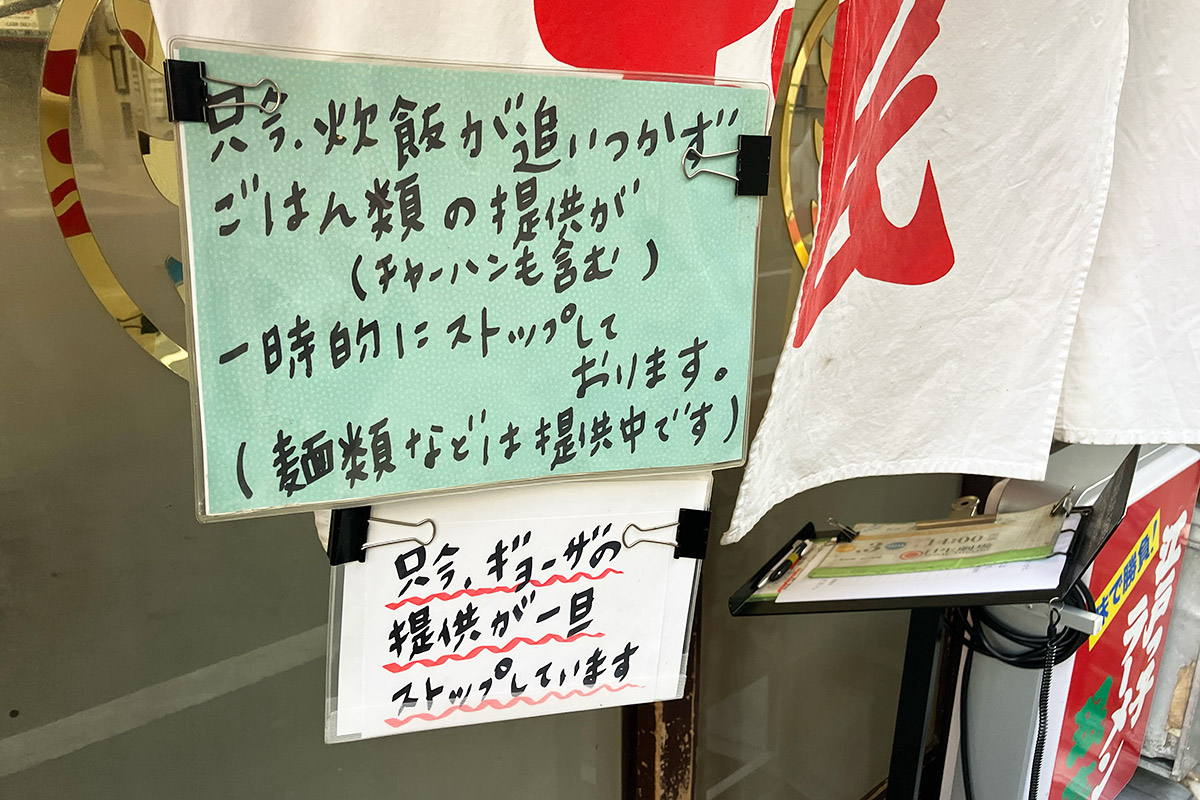 只今、炊飯が追いつかず
ごはん類の提供が
(チャーハンも含む)
一時的にストップして
おります。
(麺類などは提供中です)
只今、ギョーザの
提供が一旦
ストップしています
14:00
まで勝負!
ラーメン